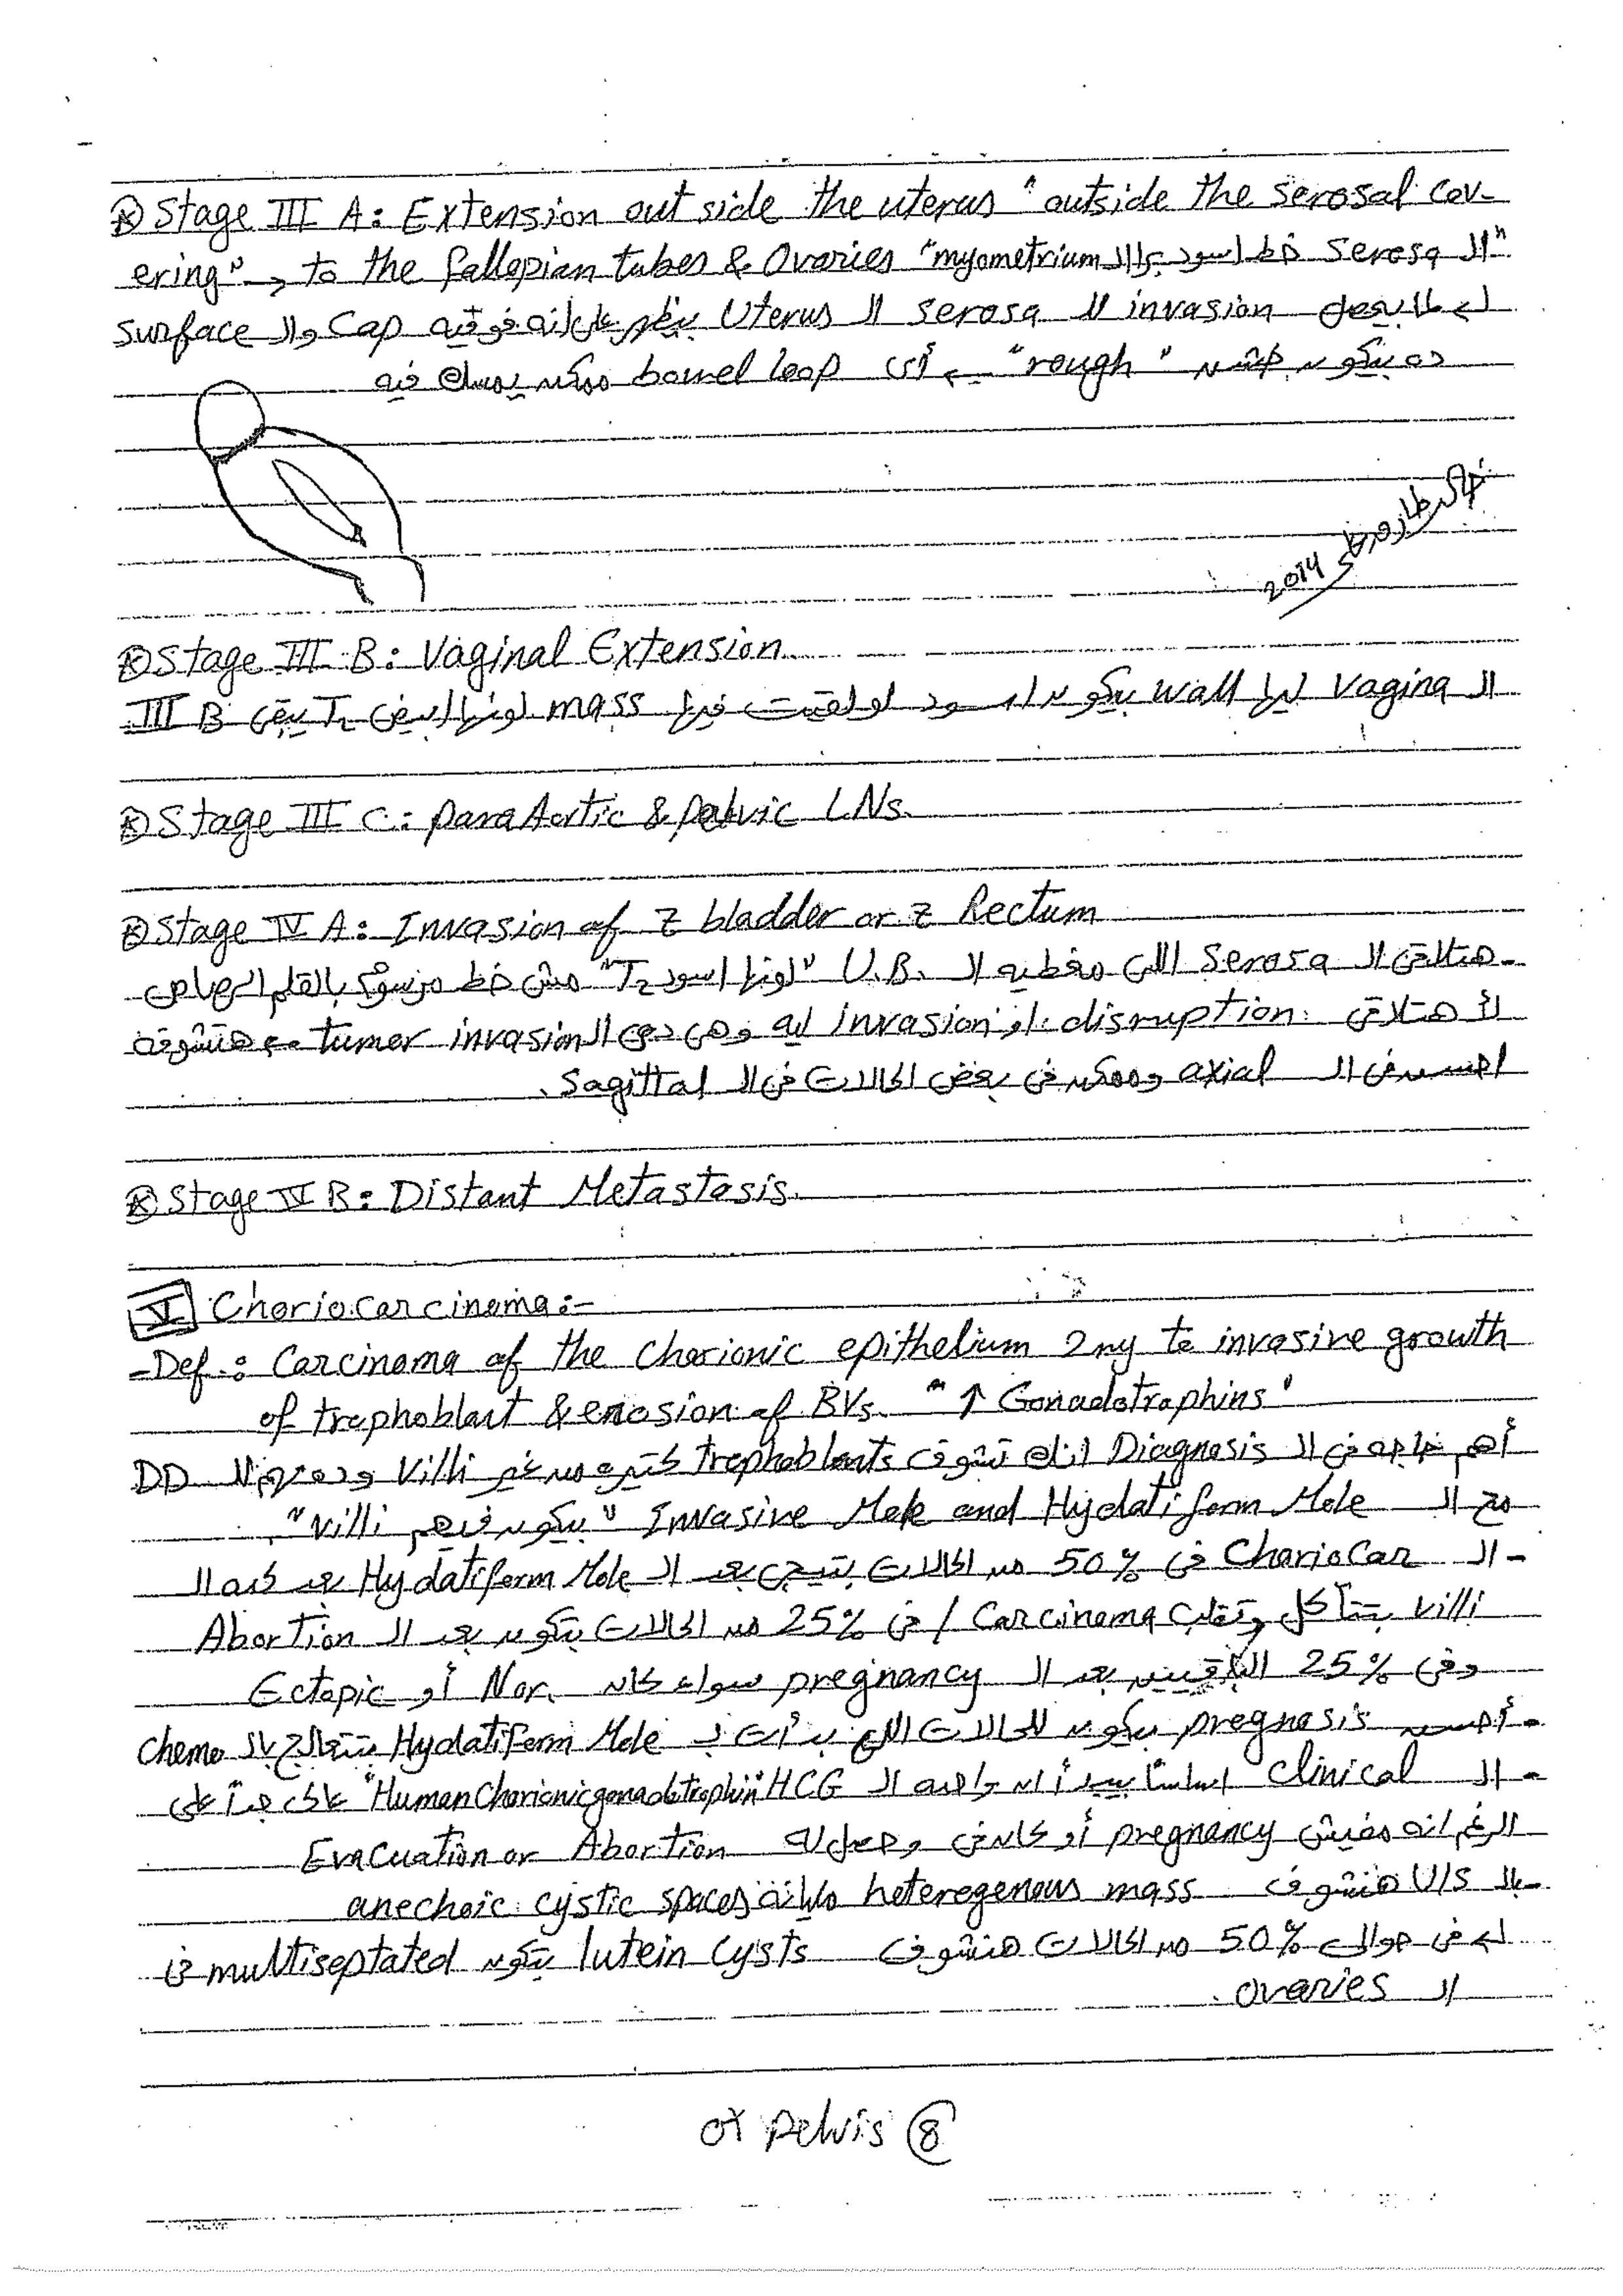 Stage III A: Extension out side the uterus "outside the serosal cov-
ering" → to the fallopian tubes & Ovaries "ال serosa خط اسود برا ال myometrium"
لما يحصل invasion لل serosa ال Uterus بيظهر على انه فوقيه Cap وال surface
ده بيكون خشن "rough" ← أى bowel loop ممكن يمسك فيه
2014
Stage III B: Vaginal Extension
ال Vagina ليها wall بيكون اسود لو لقيت فيها mass لونها ابيض T2 يبقى III B
Stage III C: para Aortic & pelvic LNs.
Stage IV A: Invasion of z bladder or z Rectum
هتلاقى ال Serosa اللى مغطيه ال U.B. "لونها اسود T2" مش خط مرسوم بالقلم الرصاص
لأ هتلاقى disruption او invasion ليه وهى دى ال tumer invasion هتشوفه
احسن فى ال axial وممكن فى بعض الحالات فى ال Sagittal.
Stage IV B: Distant Metastasis.
V Choriocarcinoma:-
-Def.: Carcinoma of the Chorionic epithelium 2ny to invasive growth
of trophoblast & erosion of BVs. "↑ Gonadotrophins"
أهم حاجه فى ال Diagnosis انك تشوف trophoblasts كتيره من غير Villi وده مهم لل DD
مع ال Invasive Mole and Hydatiform Mole "بيكون فيهم villi".
- ال ChorioCar فى 50% من الحالات بتيجى بعد ال Hydatiform Mole بعد كده ال
villi بتتآكل وتقلب Carcinoma / فى 25% من الحالات بتكون بعد ال Abortion
وفى 25% الباقيين بعد ال pregnancy سواء كان Nor. أو Ectopic
- أحسن prognosis بيكون للحالات اللى بدأت ب Hydatiform Mole بتتعالج بال Chemo
- ال Clinical اساساً بيبدأ ان ال HCG "Human Chorionic gonadotrophin" عالى جداً على
الرغم انه مفيش pregnancy أو كان فى وحصل له Evacuation or Abortion
- بال U/S هنشوف heterogenous mass مليانة anechoic cystic spaces
فى حوالى 50% من الحالات هنشوف lutein Cysts بتكون multiseptated فى
ال ovaries.
pelvis 8